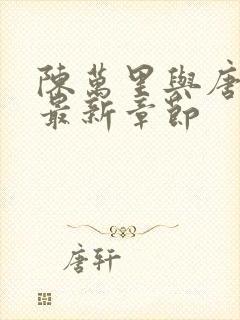 陳萬里與唐
最新章節
唐轩